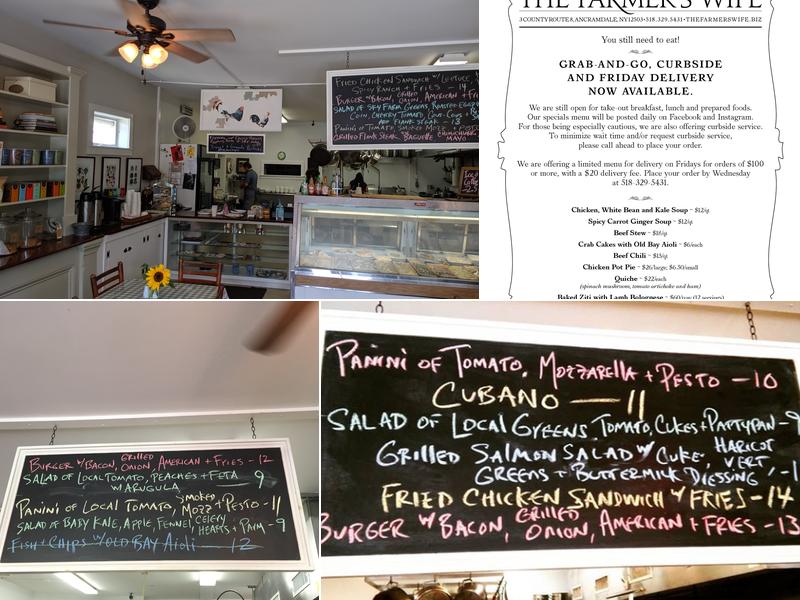 FRIED CHICKEN SANDWICH W/ LETTUCE,
SPICY RANCH + FRIES - 14
BURGER W/BACON, GRILLED ONION, AMERICAN + FRIES
SALAD OF SKY FARM GREENS, ROASTED
CORN, CHERRY TOMATO,
AND FLANK STEAK - 13
PANINI OF TOMATO, SMOKED MOZZ + PESTO
GRILLED FLANK STEAK, BAGUETTE,
MAYO
THE FARMER'S WIFE
3 COUNTY ROUTE 8, ANCRAMDALE, NY 12503 • 518.329.5431 • THEFARMERSWIFE.BIZ
You still need to eat!
GRAB-AND-GO, CURBSIDE
AND FRIDAY DELIVERY
NOW AVAILABLE.
We are still open for take-out breakfast, lunch and prepared foods.
Our specials menu will be posted daily on Facebook and Instagram.
For those being especially cautious, we are also offering curbside service.
To minimize wait time and/or request curbside service,
please call ahead to place your order.
We are offering a limited menu for delivery on Fridays for orders of $100
or more, with a $20 delivery fee. Place your order by Wednesday
at 518-329-5431.
Chicken, White Bean and Kale Soup ~ $12/qt
Spicy Carrot Ginger Soup ~ $12/qt
Beef Stew ~ $18/qt
Crab Cakes with Old Bay Aioli ~ $6/each
Beef Chili ~ $15/qt
Chicken Pot Pie ~ $26/large; $6.50/small
Quiche ~ $22/each
(spinach mushroom, tomato artichoke and ham)
Baked Ziti with Lamb Bolognese ~ $60/tray (12 servings)
BURGER W/BACON, GRILLED ONION, AMERICAN + FRIES - 12
SALAD OF LOCAL TOMATO, PEACHES + FETA 9
W/ARUGULA
PANINI OF LOCAL TOMATO, SMOKED MOZZ + PESTO - 11
SALAD OF BABY KALE, APPLE, FENNEL, CELERY HEARTS + PARM - 9
FISH + CHIPS W/OLD BAY AIOLI — 12
PANINI OF TOMATO, MOZZARELLA + PESTO - 10
CUBANO — 11
SALAD OF LOCAL GREENS, TOMATO, CUKES + PATTYPAN - 9
GRILLED SALMON SALAD W/ CUKE, HARICOT VERT,
GREENS + BUTTERMILK DRESSING
FRIED CHICKEN SANDWICH W/ FRIES - 14
BURGER W/ BACON, GRILLED ONION, AMERICAN + FRIES - 13